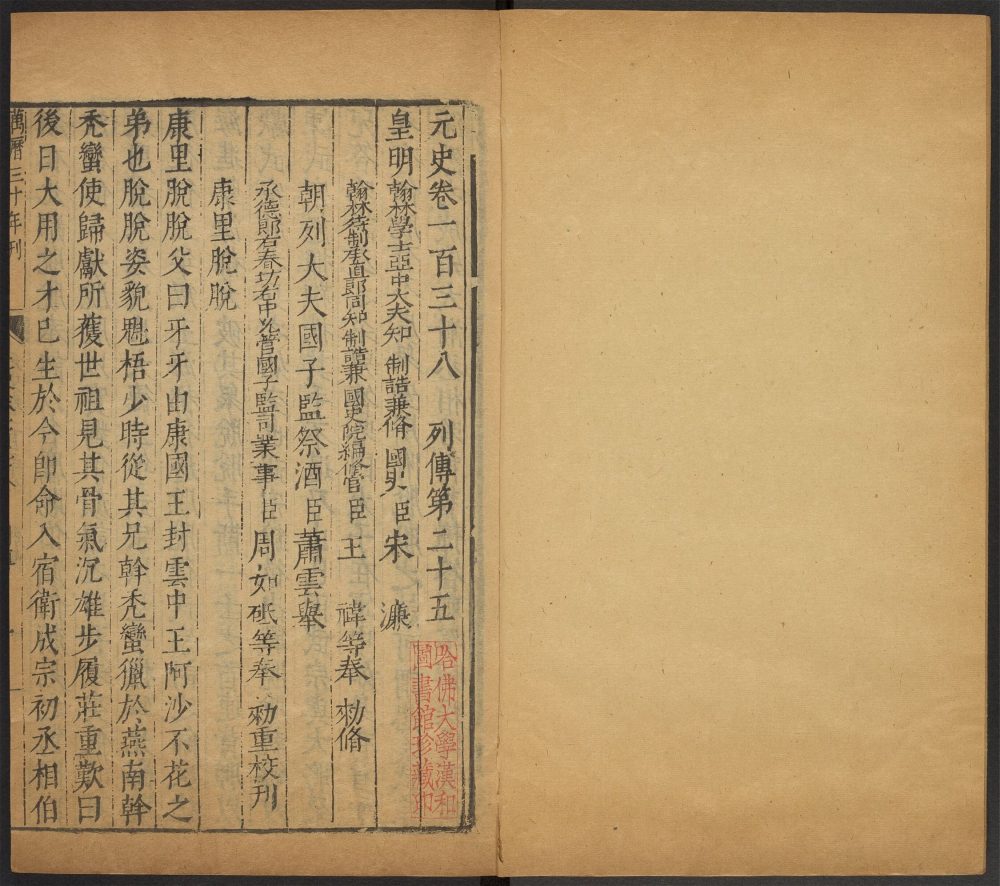 元史卷一百三十八 列傳第二十五
皇明翰林學士亞中大夫知 制誥兼脩 國史臣宋 濂
翰林待制承直郎同知 制誥兼 國史院編脩官臣王 禕等奉 勑脩
朝列大夫國子監祭酒臣蕭雲舉
承德郎右春坊右中允管國子監司業事臣周如砥等奉 勑重校刊
康里脫脫
康里脫脫父曰牙牙由康國王封雲中王阿沙不花之
弟也脫脫姿貌魁梧少時從其兄斡禿蠻獵於燕南斡
禿蠻使歸獻所獲世祖見其骨氣沉雄步履莊重歎曰
後日大用之才已生於今卽命入宿衛成宗初丞相伯
萬曆三十年刊
哈佛大學漢和
圖書館珍藏印